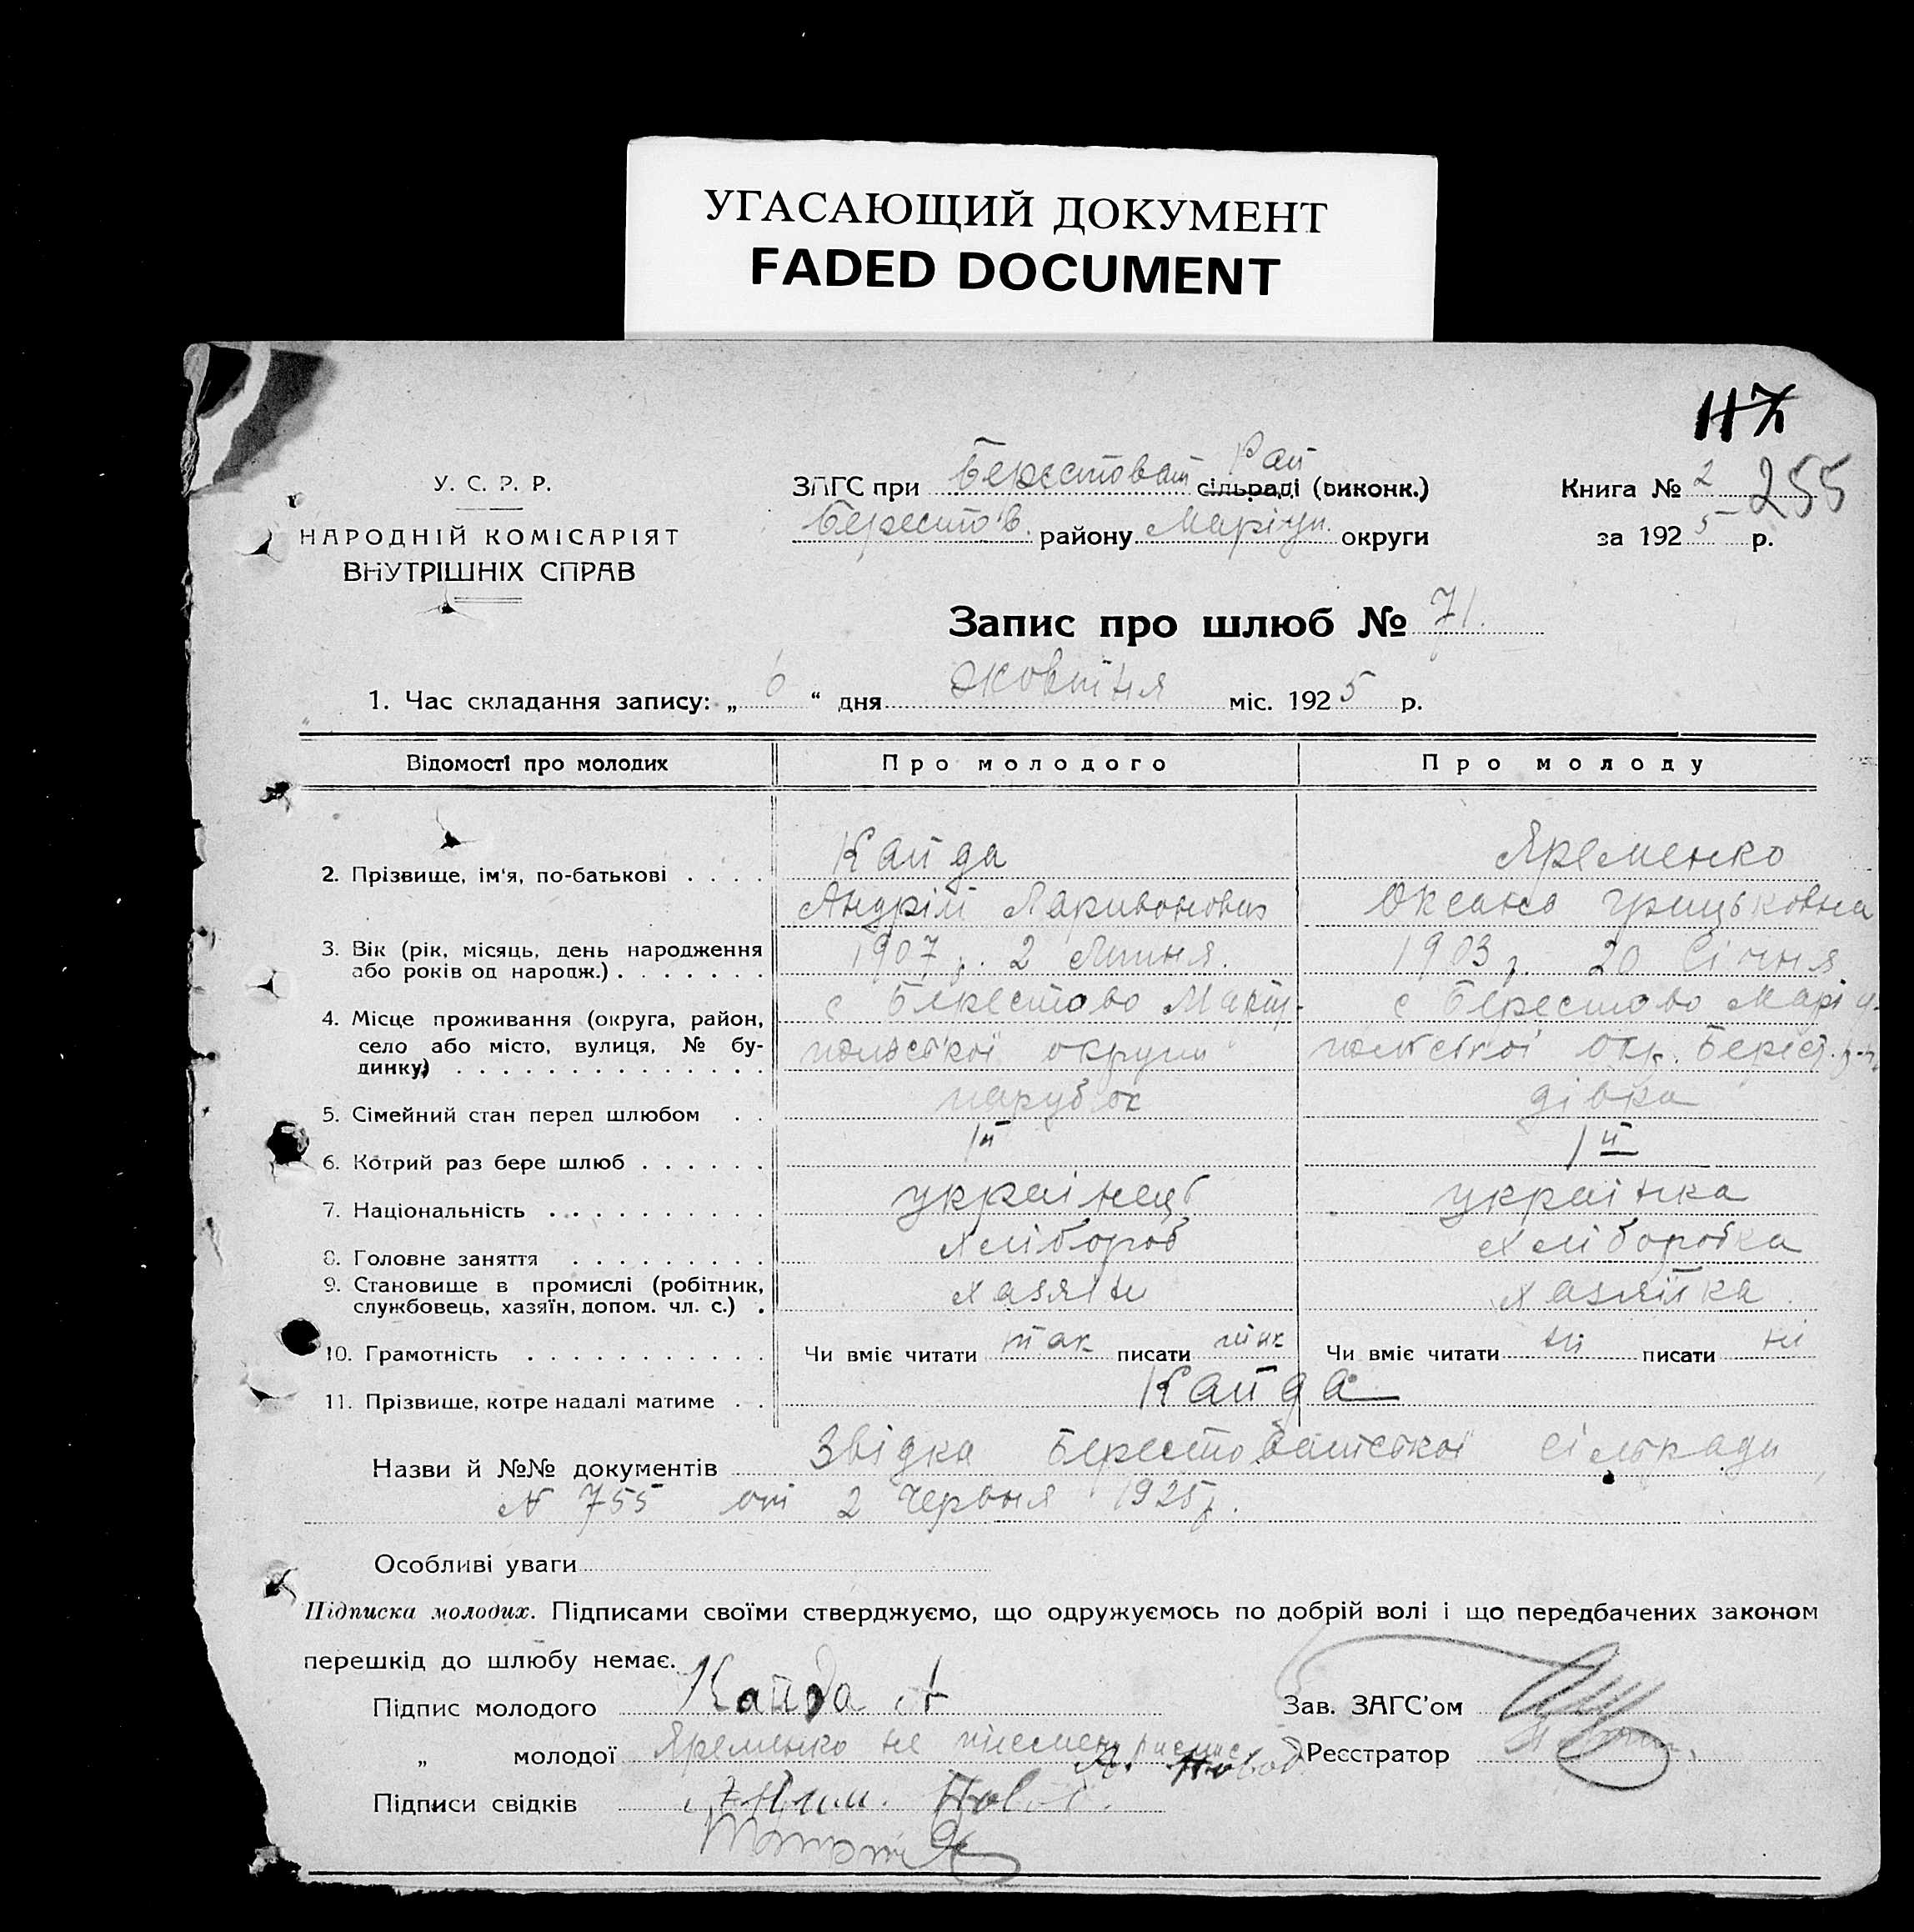 УГАСАЮЩИЙ ДОКУМЕНТ
FADED DOCUMENT
117
255
У. С. Р. Р.
НАРОДНІЙ КОМІСАРІЯТ
ВНУТРІШНІХ СПРАВ
ЗАГС при Берестоват Рай сільраді (виконк.)
Берестов. району Маріуп. округи
Книга № 2
за 1925 р.
Запис про шлюб № 71.
1. Час складання запису: „ 6 “ дня жовтня міс. 1925 р.
Відомості про молодих Про молодого Про молоду
2. Прізвище, ім'я, по-батькові . . . . Кайда Яременко
Андрій Ларивонович Оксана Грицьковна
3. Вік (рік, місяць, день народження 1907 р. 2 Липня. 1903 р. 20 Січня
або років од народж.) . . . . . . .
4. Місце проживання (округа, район, с Берестово Маріу- с Берестово Маріу-
село або місто, вулиця, № бу- польської округи польської окр. Берест. р-н
динку) . . . . . . . . . . . . . .
5. Сімейний стан перед шлюбом . . парубок дівка
6. Котрий раз бере шлюб . . . . . . 1й 1й
7. Національність . . . . . . . . . . українець українка
8. Головне заняття . . . . . . . . . хлібороб хліборобка
9. Становище в промислі (робітник, хазяїн хазяйка
службовець, хазяїн, допом. чл. с.) .
10. Грамотність . . . . . . . . . . . . Чи вміє читати так писати так Чи вміє читати ні писати ні
11. Прізвище, котре надалі матиме . . Кайда
Назви й №№ документів Звідка Берестоватської сільради
N 755 от 2 Червня 1925 р.
Особливі уваги
Підписка молодих. Підписами своїми стверджуємо, що одружуємось по добрій волі і що передбачених законом
перешкід до шлюбу немає.
Підпис молодого Кайда А Зав. ЗАГС'ом
„ молодої Яременко не писмен Реєстратор
Підписи свідків